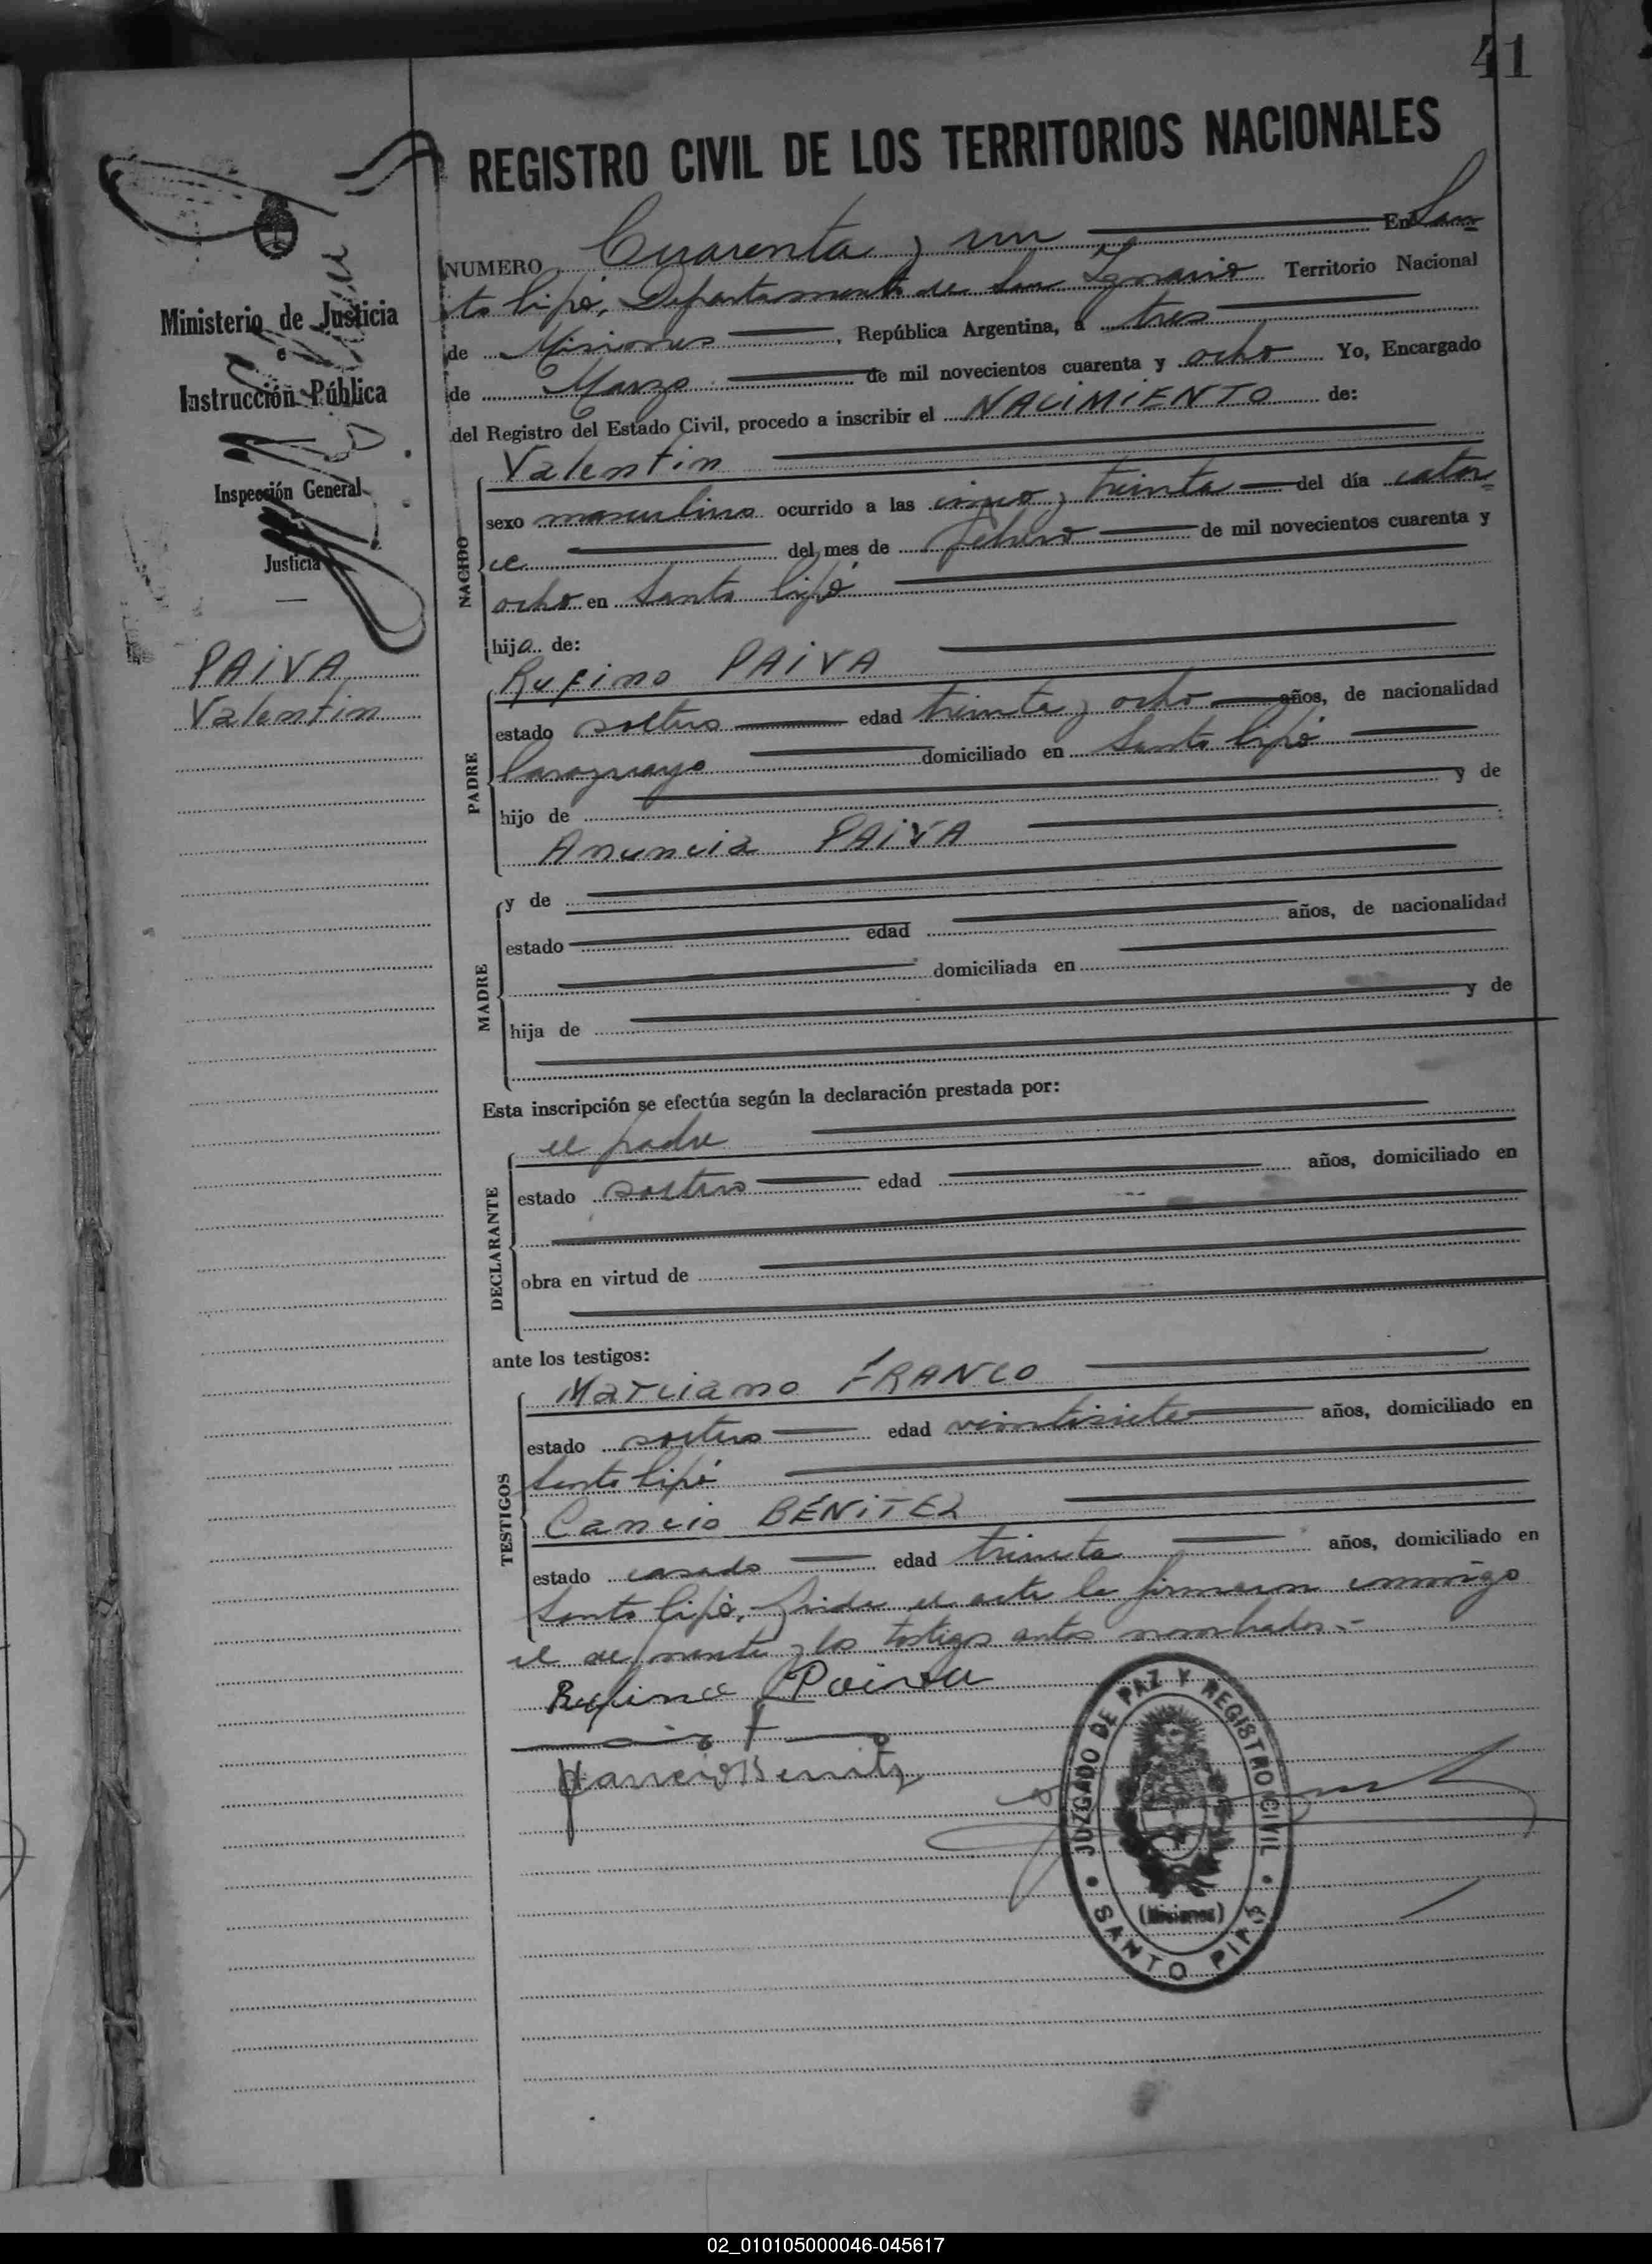 41
REGISTRO CIVIL DE LOS TERRITORIOS NACIONALES
NUMERO Cuarenta y un En San
to Pipó, Departamento de San Ignacio Territorio Nacional
de Misiones, República Argentina, a tres
de Marzo de mil novecientos cuarenta y ocho Yo, Encargado
del Registro del Estado Civil, procedo a inscribir el NACIMIENTO de:
Ministerio de Justicia
e
Instrucción Pública
Inspección General
Justicia
PAIVA
Valentin
NACIDO
Valentin
sexo masculino ocurrido a las cinco y treinta del día cator
ce del mes de febrero de mil novecientos cuarenta y
ocho en Santo Pipó
hijo de:
PADRE
Rufino PAIVA
estado soltero edad treinta y ocho años, de nacionalidad
Paraguayo domiciliado en Santo Pipó
hijo de y de
Anuncia PAIVA
MADRE
y de
estado edad años, de nacionalidad
domiciliada en
hija de y de
Esta inscripción se efectúa según la declaración prestada por:
DECLARANTE
el padre
estado soltero edad años, domiciliado en
obra en virtud de
ante los testigos:
TESTIGOS
Marciano FRANCO
estado soltero edad veintisiete años, domiciliado en
Santo Pipó
Cancio BENITEZ
estado casado edad treinta años, domiciliado en
Santo Pipó, el acta la firmaron conmigo
el y los testigos antes nombrados.-
Rufino Paiva
Cancio Benitz
JUZGADO DE PAZ Y REGISTRO CIVIL
(Misiones)
SANTO PIPÓ
02_010105000046-045617